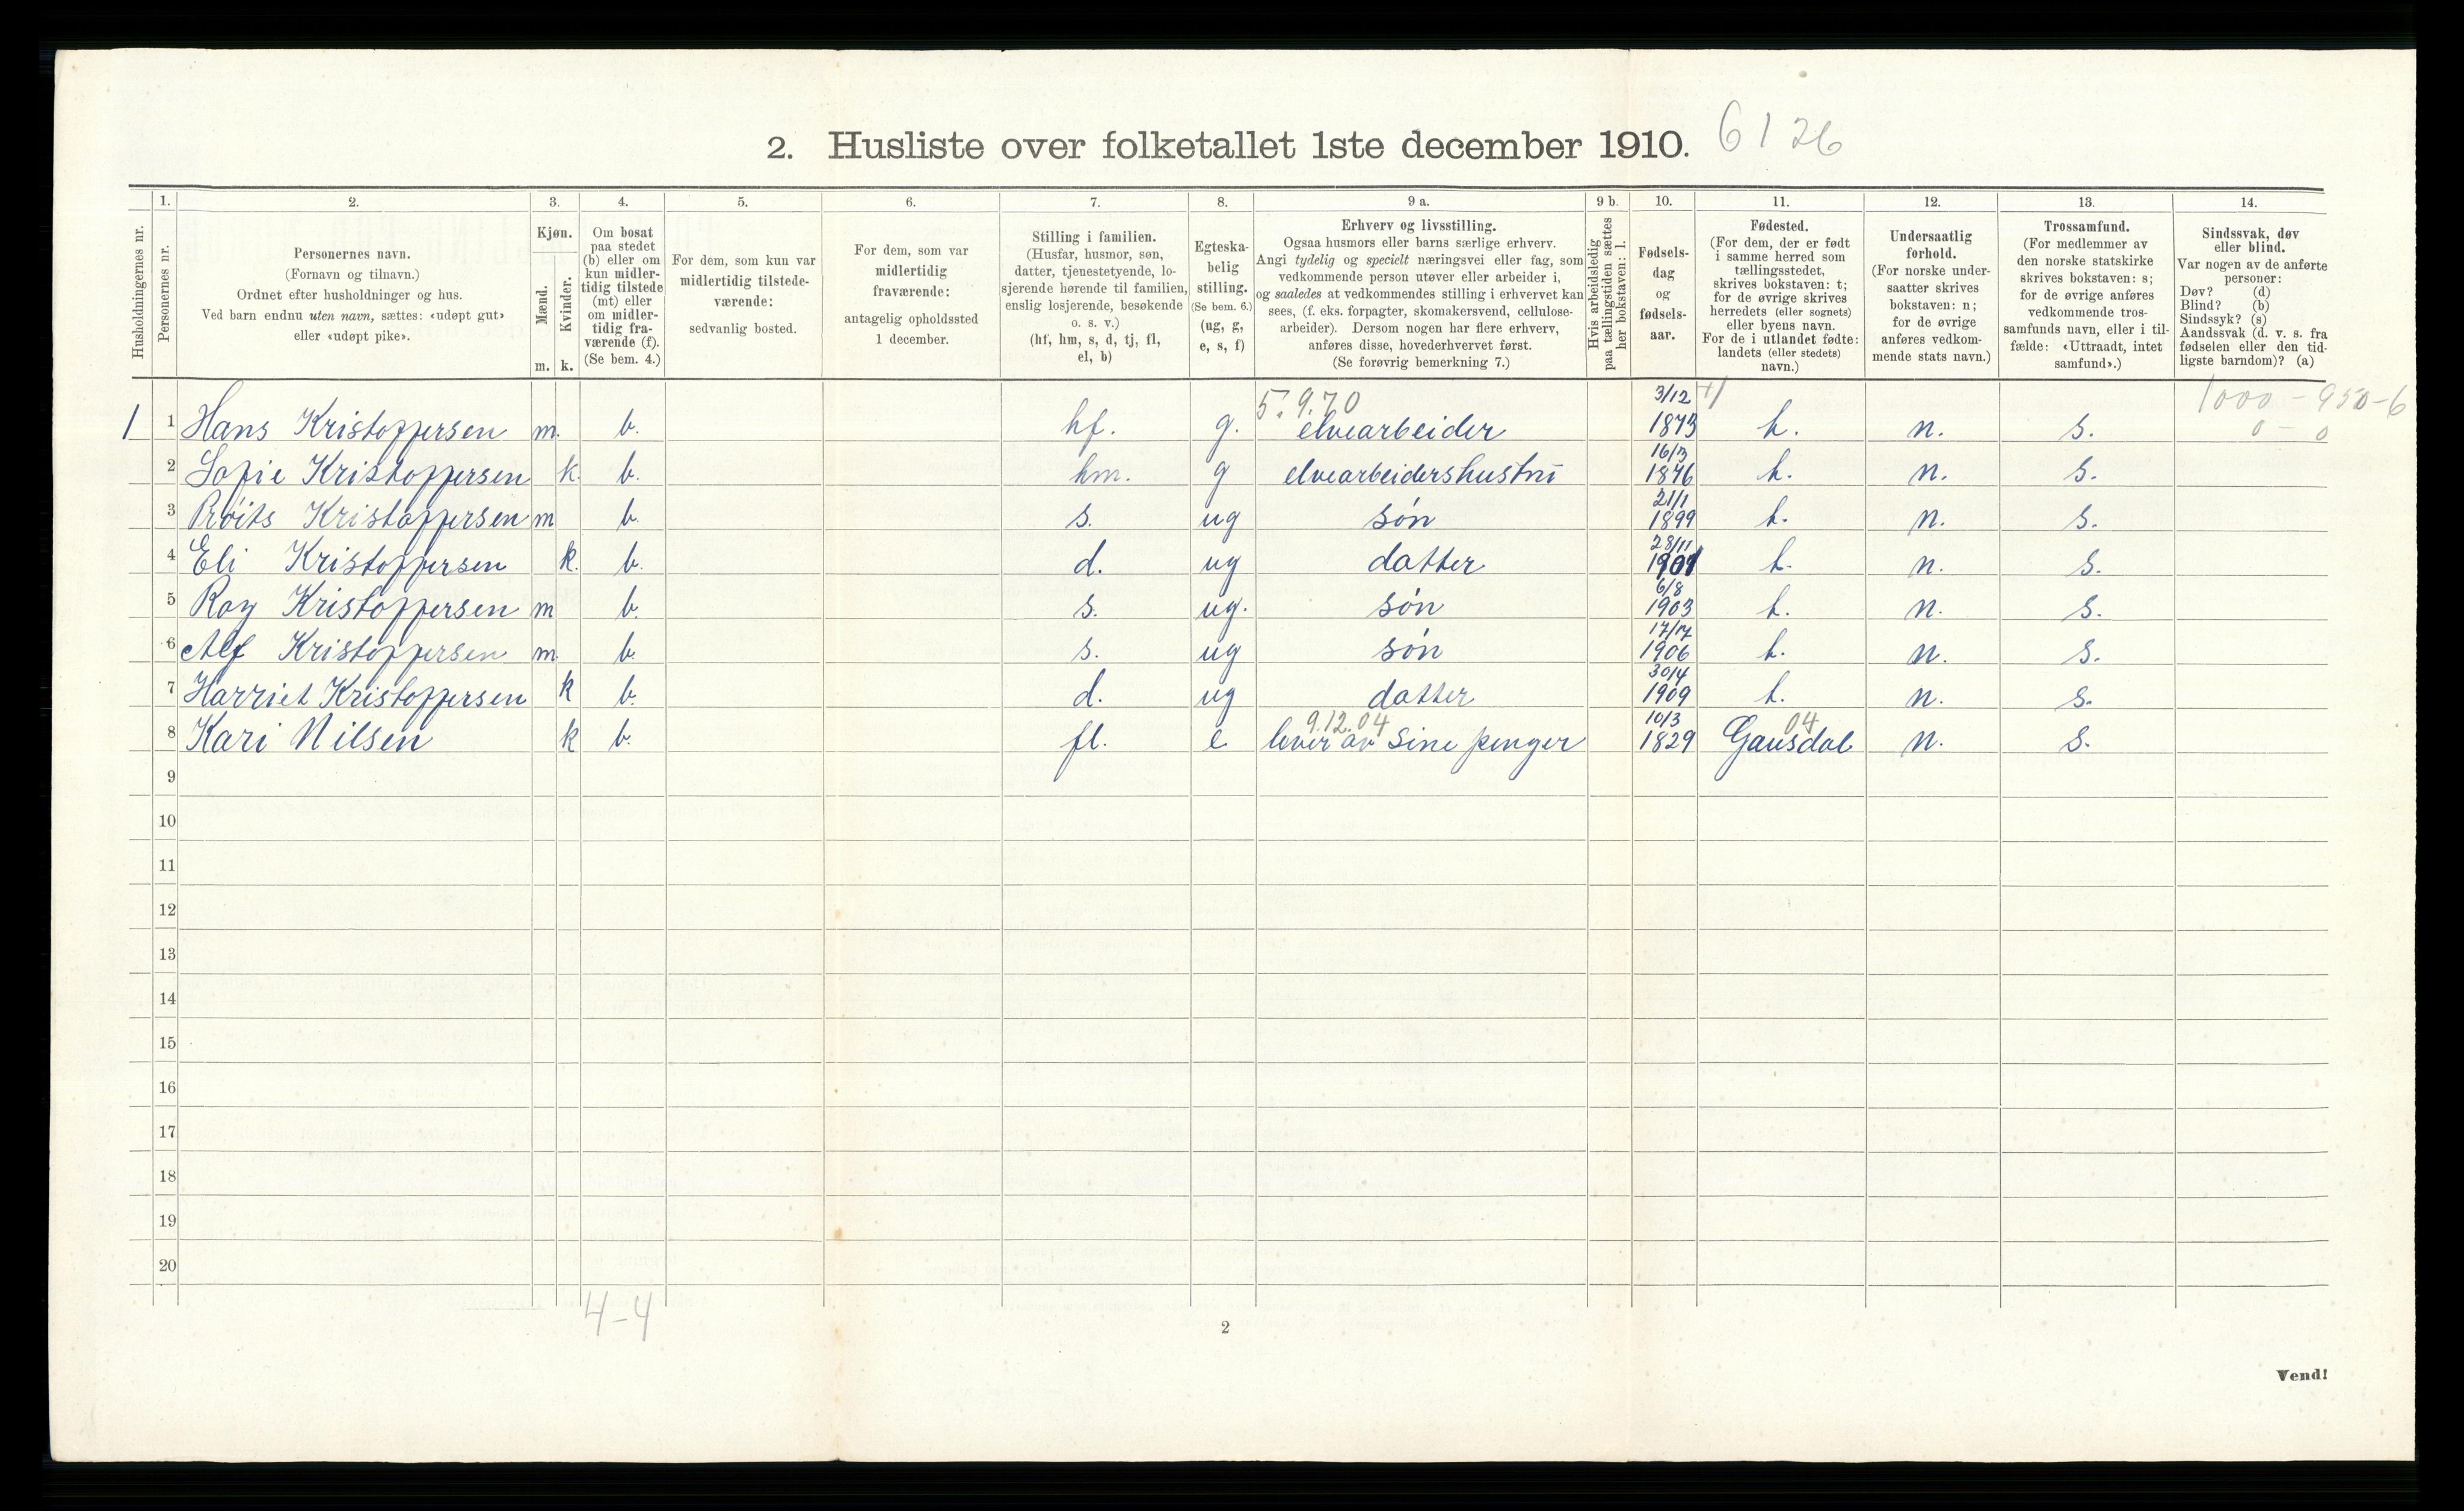 2. Husliste over folketallet 1ste december 1910. 6126
1. 2. 3. 4. 5. 6. 7. 8. 9 a. 9 b. 10. 11. 12. 13. 14.
Husholdningernes nr.
Personernes nr.
Personernes navn.
(Fornavn og tilnavn.)
Ordnet efter husholdninger og hus.
Ved barn endnu uten navn, sættes: «udøpt gut»
eller «udøpt pike».
Kjøn.
Mænd.
Kvinder.
m. k.
Om bosat
paa stedet
(b) eller om
kun midler-
tidig tilstede
(mt) eller
om midler-
tidig fra-
værende (f).
(Se bem. 4.)
For dem, som kun var
midlertidig tilstede-
værende:
sedvanlig bosted.
For dem, som var
midlertidig
fraværende:
antagelig opholdssted
1 december.
Stilling i familien.
(Husfar, husmor, søn,
datter, tjenestetyende, lo-
sjerende hørende til familien,
enslig losjerende, besøkende
o. s. v.)
(hf, hm, s, d, tj, fl,
el, b)
Egteska-
belig
stilling.
(Se bem. 6.)
(ug, g,
e, s, f)
Erhverv og livsstilling.
Ogsaa husmors eller barns særlige erhverv.
Angi tydelig og specielt næringsvei eller fag, som
vedkommende person utøver eller arbeider i,
og saaledes at vedkommendes stilling i erhvervet kan
sees, (f. eks. forpagter, skomakersvend, cellulose-
arbeider). Dersom nogen har flere erhverv,
anføres disse, hovederhvervet først.
(Se forøvrig bemerkning 7.)
Hvis arbeidsledig
paa tællingstiden sættes
her bokstaven: l.
Fødsels-
dag
og
fødsels-
aar.
Fødested.
(For dem, der er født
i samme herred som
tællingsstedet,
skrives bokstaven: t;
for de øvrige skrives
herredets (eller sognets)
eller byens navn.
For de i utlandet fødte:
landets (eller stedets)
navn.)
Undersaatlig
forhold.
(For norske under-
saatter skrives
bokstaven: n;
for de øvrige
anføres vedkom-
mende stats navn.)
Trossamfund.
(For medlemmer av
den norske statskirke
skrives bokstaven: s;
for de øvrige anføres
vedkommende tros-
samfunds navn, eller i til-
fælde: «Uttraadt, intet
samfund».)
Sindssvak, døv
eller blind.
Var nogen av de anførte
personer:
Døv? (d)
Blind? (b)
Sindssyk? (s)
Aandssvak (d. v. s. fra
fødselen eller den tid-
ligste barndom)? (a)
5.9.70 3/12 1000 - 950-6
1 1 Hans Kristoffersen m. b. hf. g. elvearbeider 1873 t. n. s. 0 - 0
16/3
2 Sofie Kristoffersen k. b. hm. g elvearbeidershustru 1876 t. n. s.
21/1
3 Kristoffersen m b. s. ug søn 1899 t. n. s.
28/11
4 Eli Kristoffersen k. b. d. ug datter 1901 t. n. s.
6/8
5 Roy Kristoffersen m b. s. ug. søn 1903 t. n. s.
6 Alf Kristoffersen m. b. s. ug søn 1906 t. n. s.
30/4
7 Harriet Kristoffersen k b. d. ug datter 1909 t. n. s.
9.12.04 10/3 04
8 Kari Nilsen k b. fl. e lever av sine penger 1829 Gausdal n. s.
9
10
11
12
13
14
15
16
17
18
19
20
4-4
2
Vend!